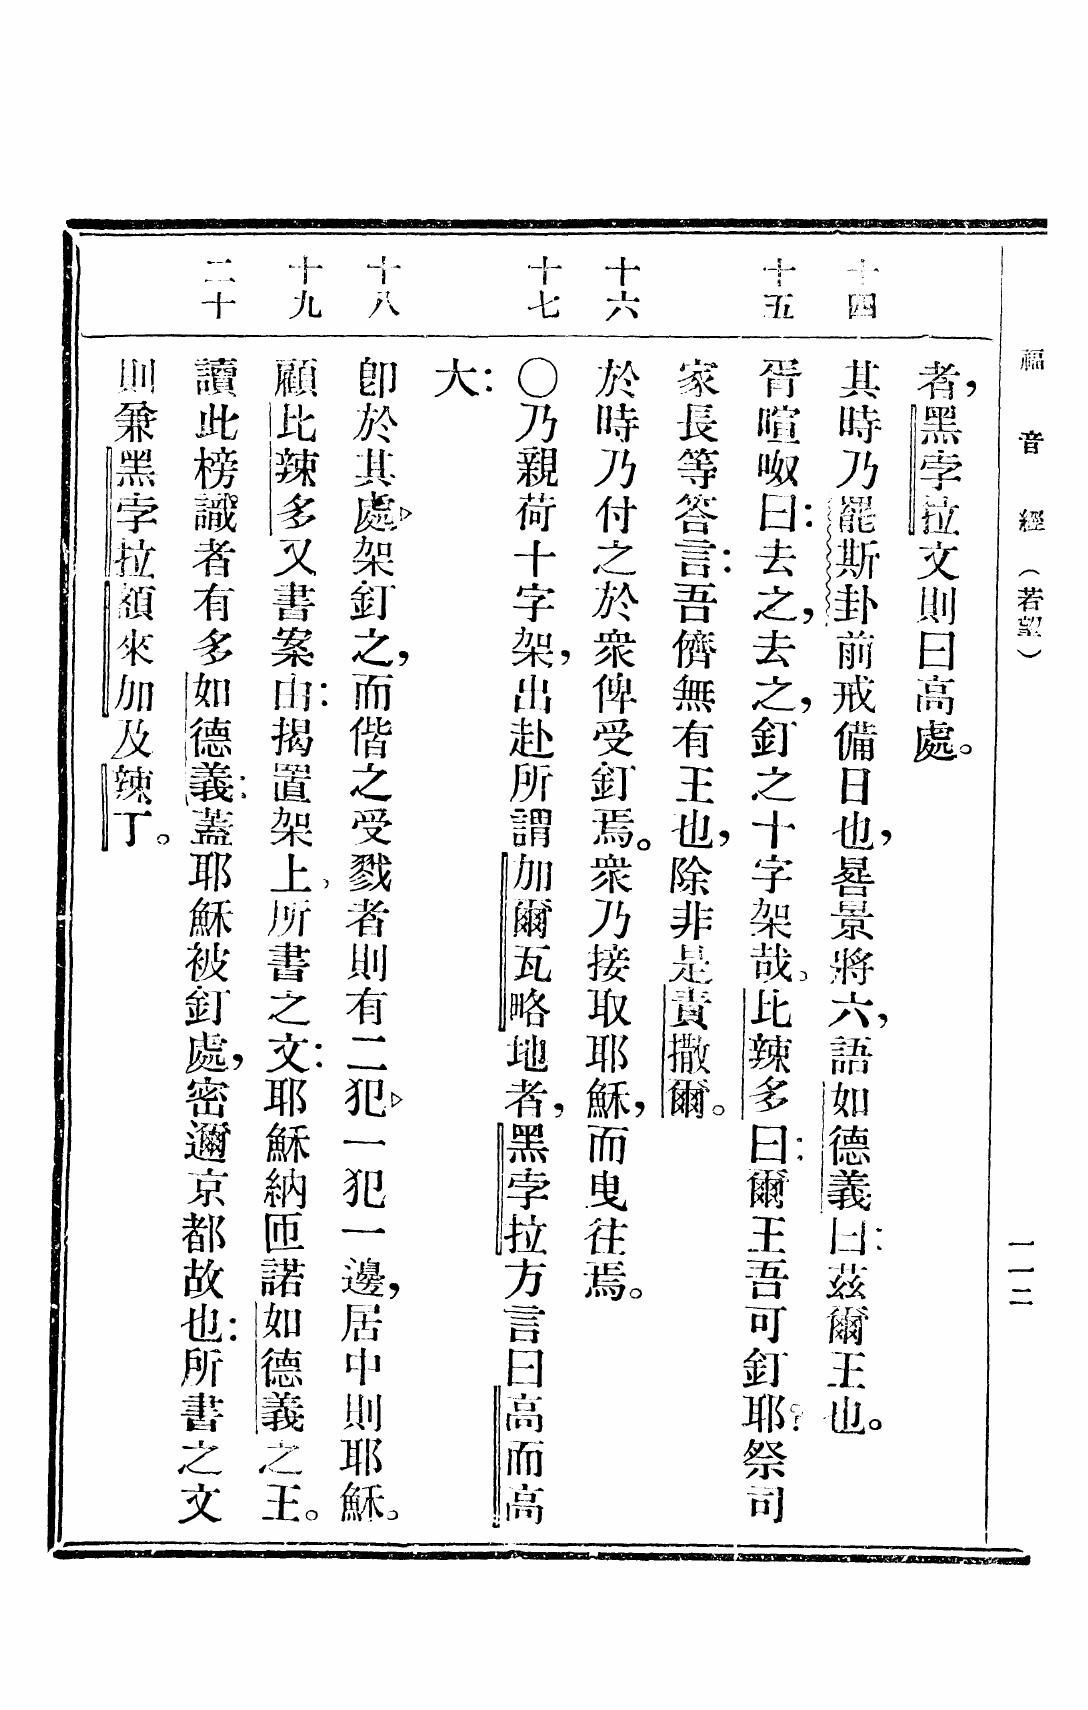 福音經（若望）　一一二
者，黑孛拉文則曰高處。
十四　其時乃罷斯卦前戒備日也，晷景將六，語如德義曰：茲爾王也。
十五　胥喧呶曰：去之，去之，釘之十字架哉。比辣多曰：爾王吾可釘耶？祭司
家長等答言：吾儕無有王也，除非是責撒爾。
十六　於時乃付之於衆俾受釘焉。衆乃接取耶穌，而曳往焉。
十七　○乃親荷十字架，出赴所謂加爾瓦略地者，黑孛拉方言曰高而高
大：
十八　卽於其處，架釘之，而偕之受戮者則有二犯，一犯一邊，居中則耶穌。
十九　顧比辣多又書案由：揭置架上，所書之文：耶穌納匝諾如德義之王。
二十　讀此榜識者有多如德義：蓋耶穌被釘處，密邇京都故也：所書之文
則兼黑孛拉額來加及辣丁。